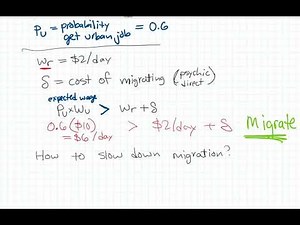 Pu = probability = 0.6
get urban job
wr = $2/day
δ = cost of migrating (psychic
direct)
expected wage
Pu×Wu > wr + δ
0.6($10) > $2/day + δ Migrate
= $6/day
How to slow down migration?